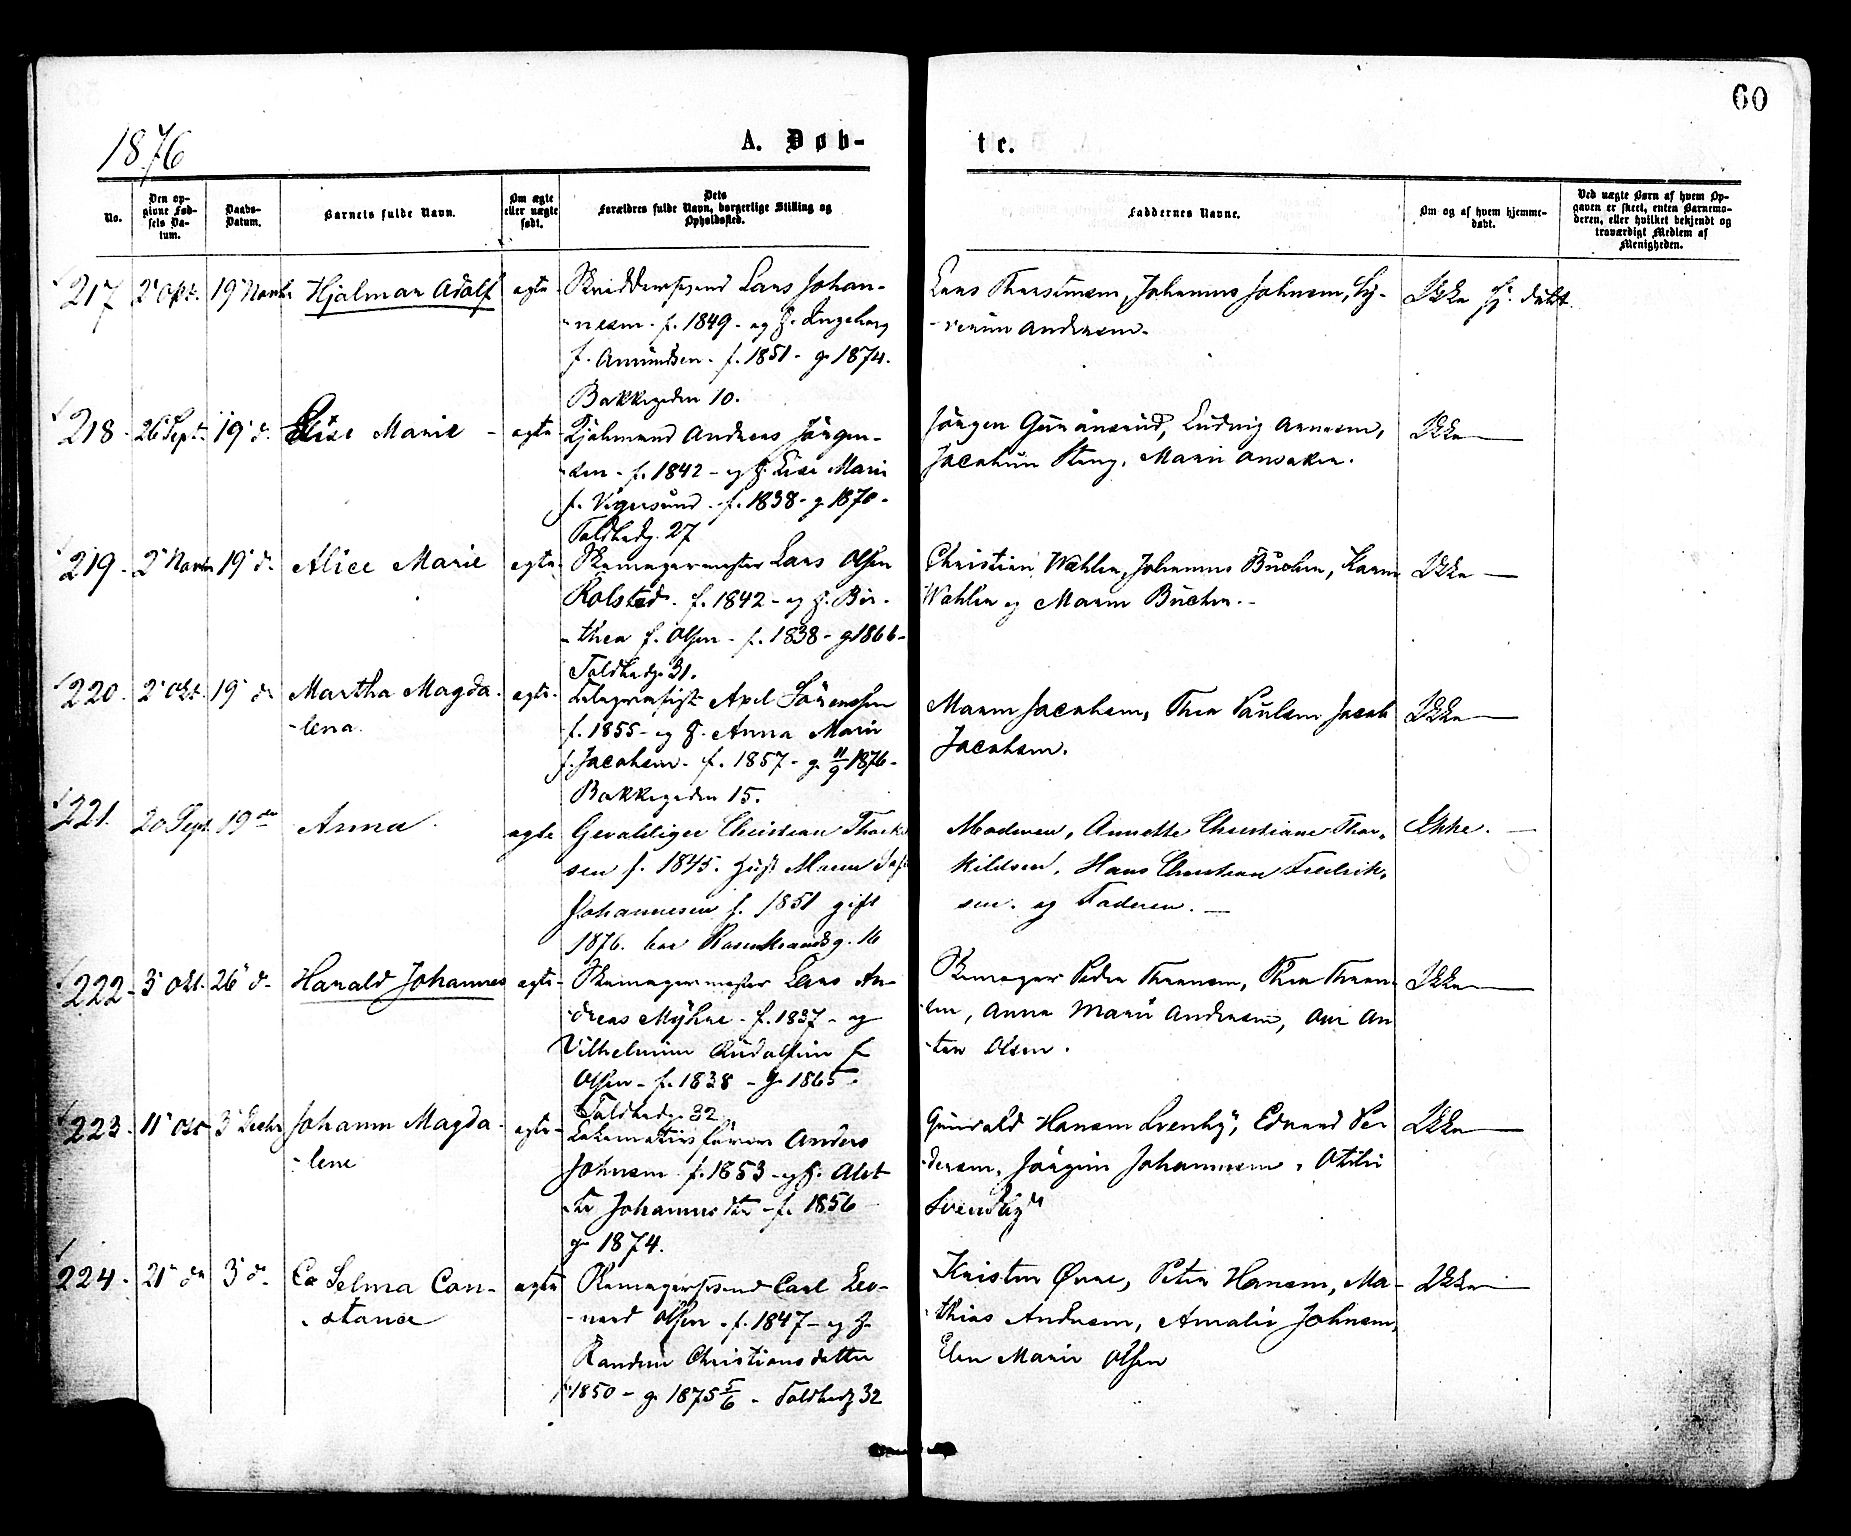 60
1876
A. Døb-
te.
No.
Den op-
givne Fød-
sels Da-
tum.
Daabs-
Datum.
Barnets fulde Navn.
Om ægte
eller uægte
født.
Dets
Forældres fulde Navn, borgerlige Stilling og
Opholdssted.
Faddernes Navne.
Om og af hvem hjemme-
døbt.
Ved uægte Børn af hvem Op-
gaven er skeet, enten Barnemo-
deren, eller hvilket bekjendt og
troværdigt Medlem af
Menigheden.
217 2' Okt. 19' Novbr Hjalmar Adolf egte
Skreddersvend Lars Johan-
-nesen - f. 1849 - og H. Ingeborg
f. Amundsen - f. 1851 - g. 1874.
Bakkegaden 10.
Johannes Johnsen,
Andersen.
Ikke hj. døbt.
218 - 26 Sept. 19' d. Elise Marie - egte
Andreas Jörgen-
sen - f. 1842 - og H. Lise Marie
f. Vigersund - f. 1838 - g. 1870 -
Toldbodg. 27
Jörgen Ludvig Arnesen,
Marie
Ikke
219 - 2' Novbr 19' d. Alice Marie egte
Skomagermester Lars Olsen
Rolstad - f. 1842 - og H. Ber-
-thea f. Olsen - f. 1838 - g 1866 -
Toldbodg. 31.
Christian Wahlen, Johannes Buchen, Karen
Wahlen og Maren Buchen. -
Ikke
220 - 2' Okt. 19' d. Martha Magda-
-lena.
egte -
Telegrafist Axel Sörenssen
f. 1855 - og H. Anna Marie
f. Jacobsen - f. 1857 - g. 11/9 1876 -
Bakkegaden 15.
Maren Jacobsen, Thea Paulsen Jacob
Jacobsen.
Ikke
221. 20 Sept. 19 de Anna. egte
Gevaldiger Christian Thorkild
sen f. 1845. Hust. Maren
Johannesen f. 1851 gift
1876. boe Rosenkrandsg. 16
Moderen, Annette Christiane Thor-
kildsen, Hans Christian Fredrik-
sen. og Faderen.
Ikke.
222 - 3' Okt. 26' d. Harald Johannes egte -
Skomagermester Lars An-
dreas Myhre - f. 1837 - og
Vilhelmine Rudolfine f
Olsen - f. 1838 - g. 1865.
Toldbodg. 32
Skomager Peder Thoresen, Thea Thore-
sen, Anna Marie Andersen, An
ton Olsen.
Ikke
223 - 11' Okt 3' Decbr Johanne Magda-
-lene
egte -
Lokomotivförer Anders
Johnsen f. 1853 - og H. Alet
te Johannesdtr - f. 1856
g. 1874.
Gunvald Hansen Svendby, Edvard Pe-
dersen, Jörgine Johannesen, Otilie
Svendby
Ikke
224 - 21' d. 3' d. Selma Con-
stance
egte
Skomagersvend Carl Leo-
-nard Olsen - f. 1847 - og H.
Randine Christiansdatter
f. 1850 - g. 1875 5/6 - Toldbodg 32
Kristen Peter Hansen, Ma-
-thias Andersen, Amalie Johnsen,
Elen Marie Olsen
Ikke